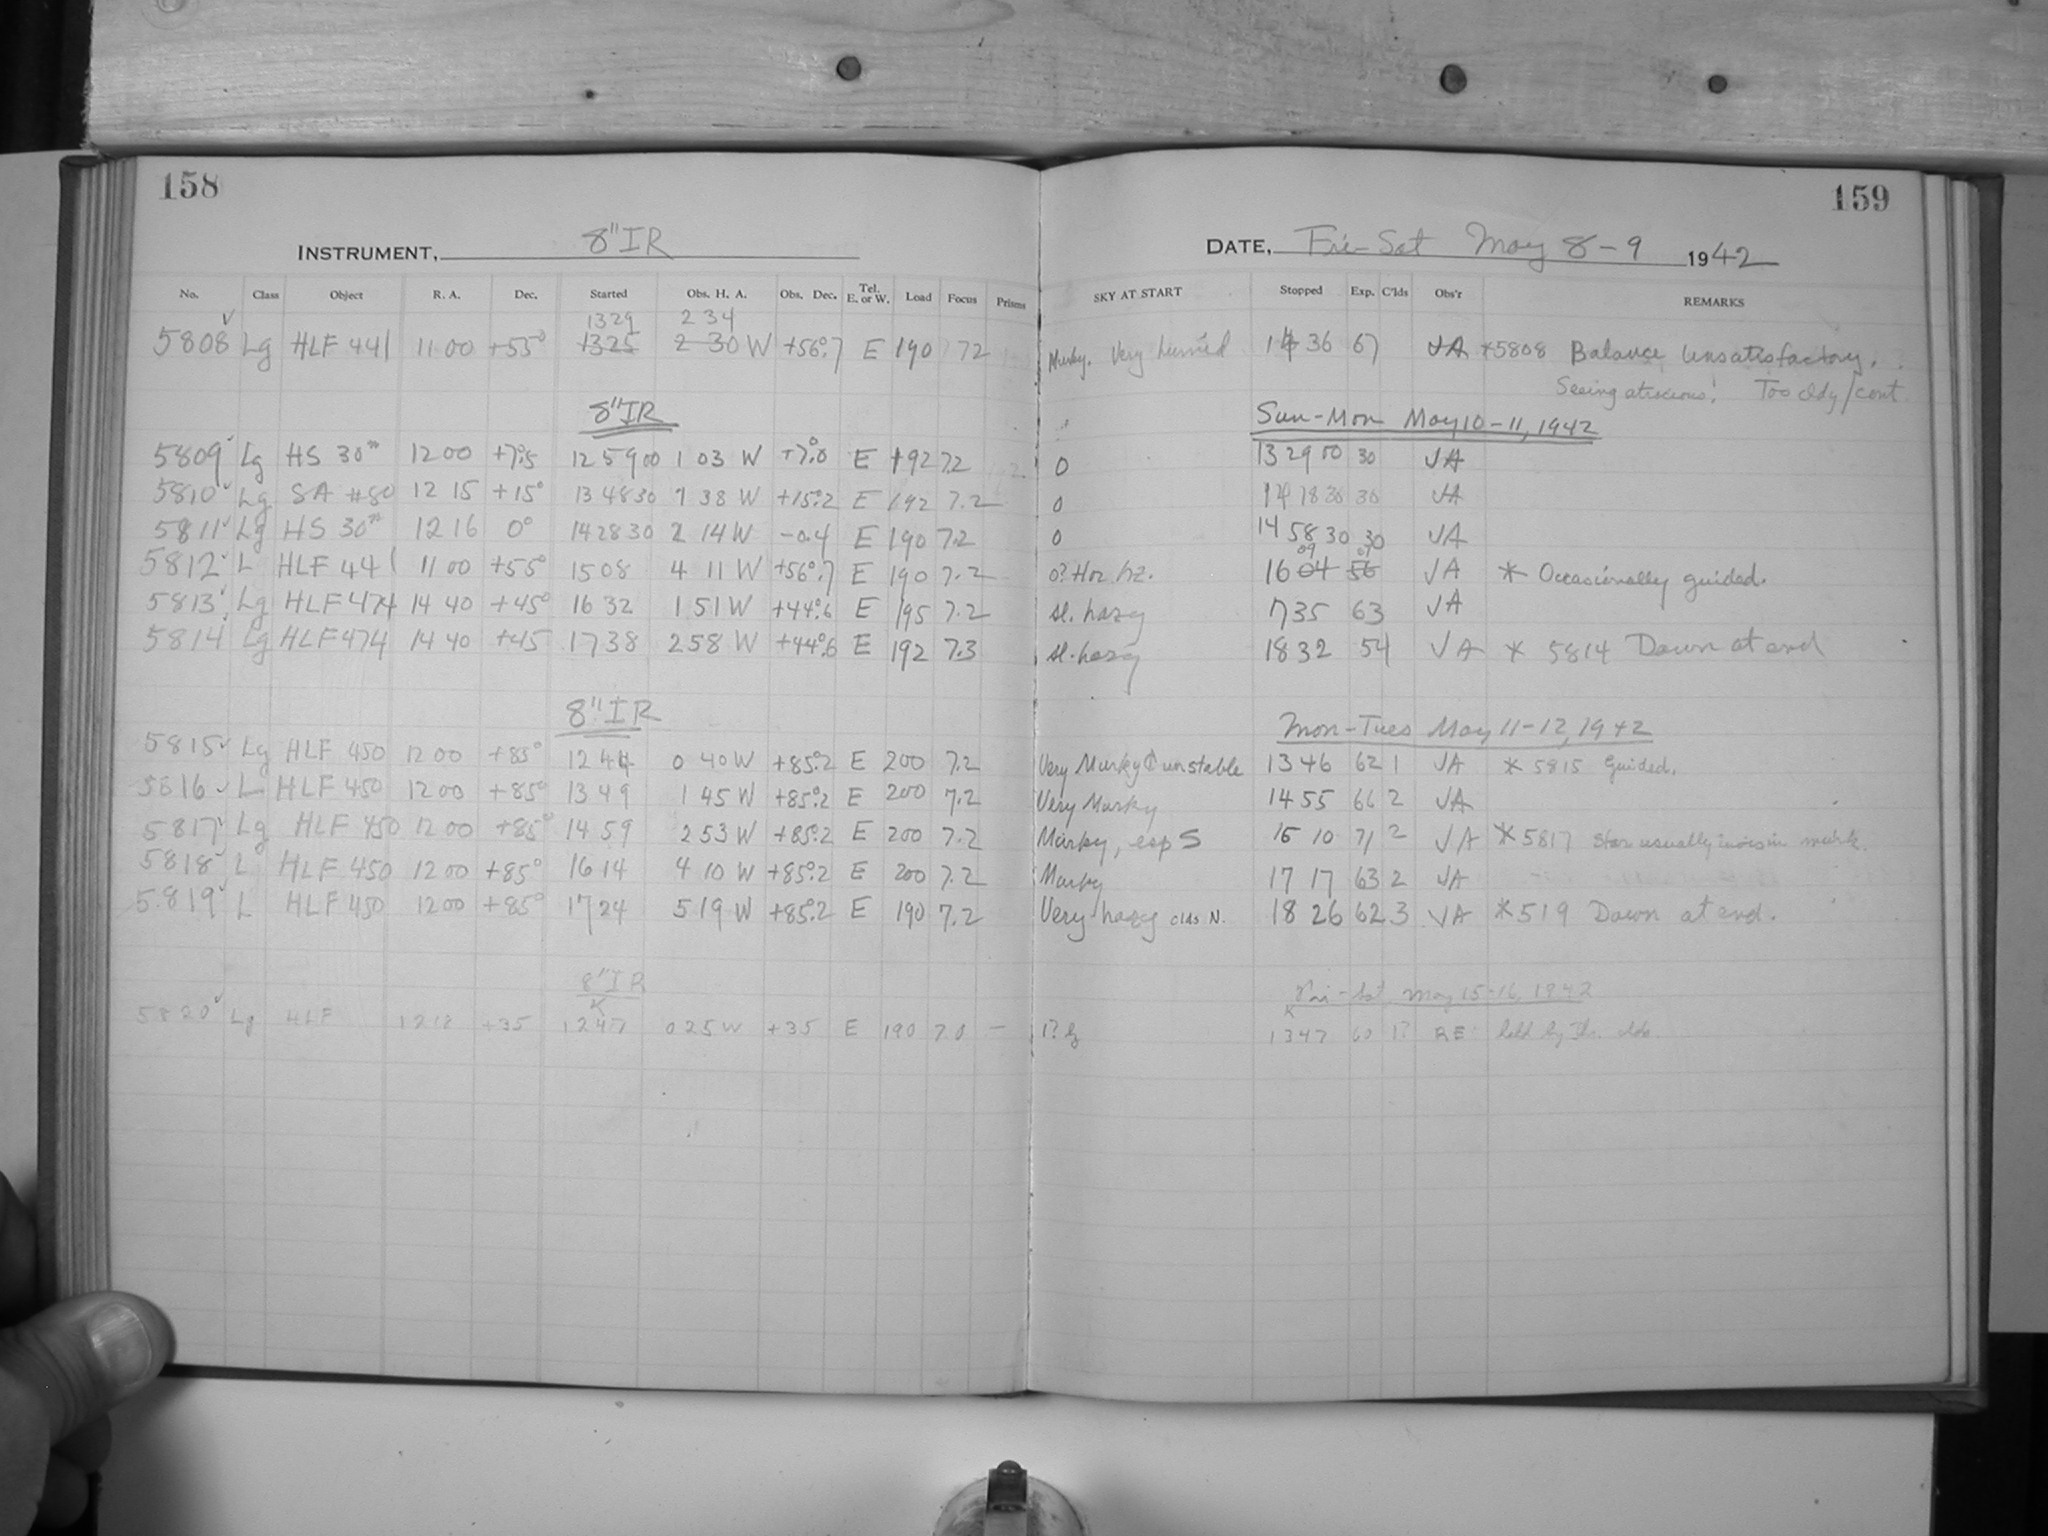 158
159
INSTRUMENT, 8" IR
DATE, Fri-Sat May 8-9 1942
No. Class Object R. A. Dec. Started Obs. H. A. Obs. Dec. Tel. E. or W. Load Focus Prisms SKY AT START Stopped Exp. C'lds Obs'r REMARKS
1329 2 34
5808 Lg HLF 441 11 00 +55° 1325 2 30 W +56°.7 E 190 7.2 Murky. Very 14 36 67 JA *5808 Balance unsatisfactory.
Seeing atrocious! Too cldy/cont
8" IR Sun-Mon May 10-11, 1942
5809 Lg HS 30m 12 00 +7°.5 12 59 00 1 03 W +7°.0 E 192 7.2 0 13 29 00 30 JA
5810 Lg SA #80 12 15 +15° 13 48 30 1 38 W +15°.2 E 192 7.2 0 14 18 30 30 JA
5811 Lg HS 30m 12 16 0° 14 28 30 2 14 W -0.4 E 190 7.2 0 14 58 30 30 JA
09 61
5812 L HLF 441 11 00 +55° 15 08 4 11 W +56°.7 E 190 7.2 0? Hor hz. 16 04 56 JA * Occasionally guided.
5813 Lg HLF 474 14 40 +45° 16 32 1 51 W +44°.6 E 195 7.2 sl. hazy 17 35 63 JA
5814 Lg HLF 474 14 40 +45 17 38 2 58 W +44°.6 E 192 7.3 sl. hazy 18 32 54 JA * 5814 Dawn at end
8" IR Mon-Tues May 11-12, 1942
5815 Lg HLF 450 12 00 +85° 12 44 0 40 W +85°.2 E 200 7.2 Very Murky & unstable 13 46 62 1 JA * 5815 Guided.
5816 L HLF 450 12 00 +85° 13 49 1 45 W +85°.2 E 200 7.2 Very Murky 14 55 66 2 JA
5817 Lg HLF 450 12 00 +85° 14 59 2 53 W +85°.2 E 200 7.2 Murky, esp S 16 10 71 2 JA * 5817 Star usually invis in murk.
5818 L HLF 450 12 00 +85° 16 14 4 10 W +85°.2 E 200 7.2 Murky 17 17 63 2 JA
5819 L HLF 450 12 00 +85° 17 24 5 19 W +85°.2 E 190 7.2 Very hazy clds N. 18 26 62 3 JA * 519 Dawn at end.
8" IR Fri-Sat, May 15-16, 1942
K K
5820 Lg HLF 12 12 +35 12 47 0 25 W +35 E 190 7.0 - 1? 13 47 60 1? RE held by